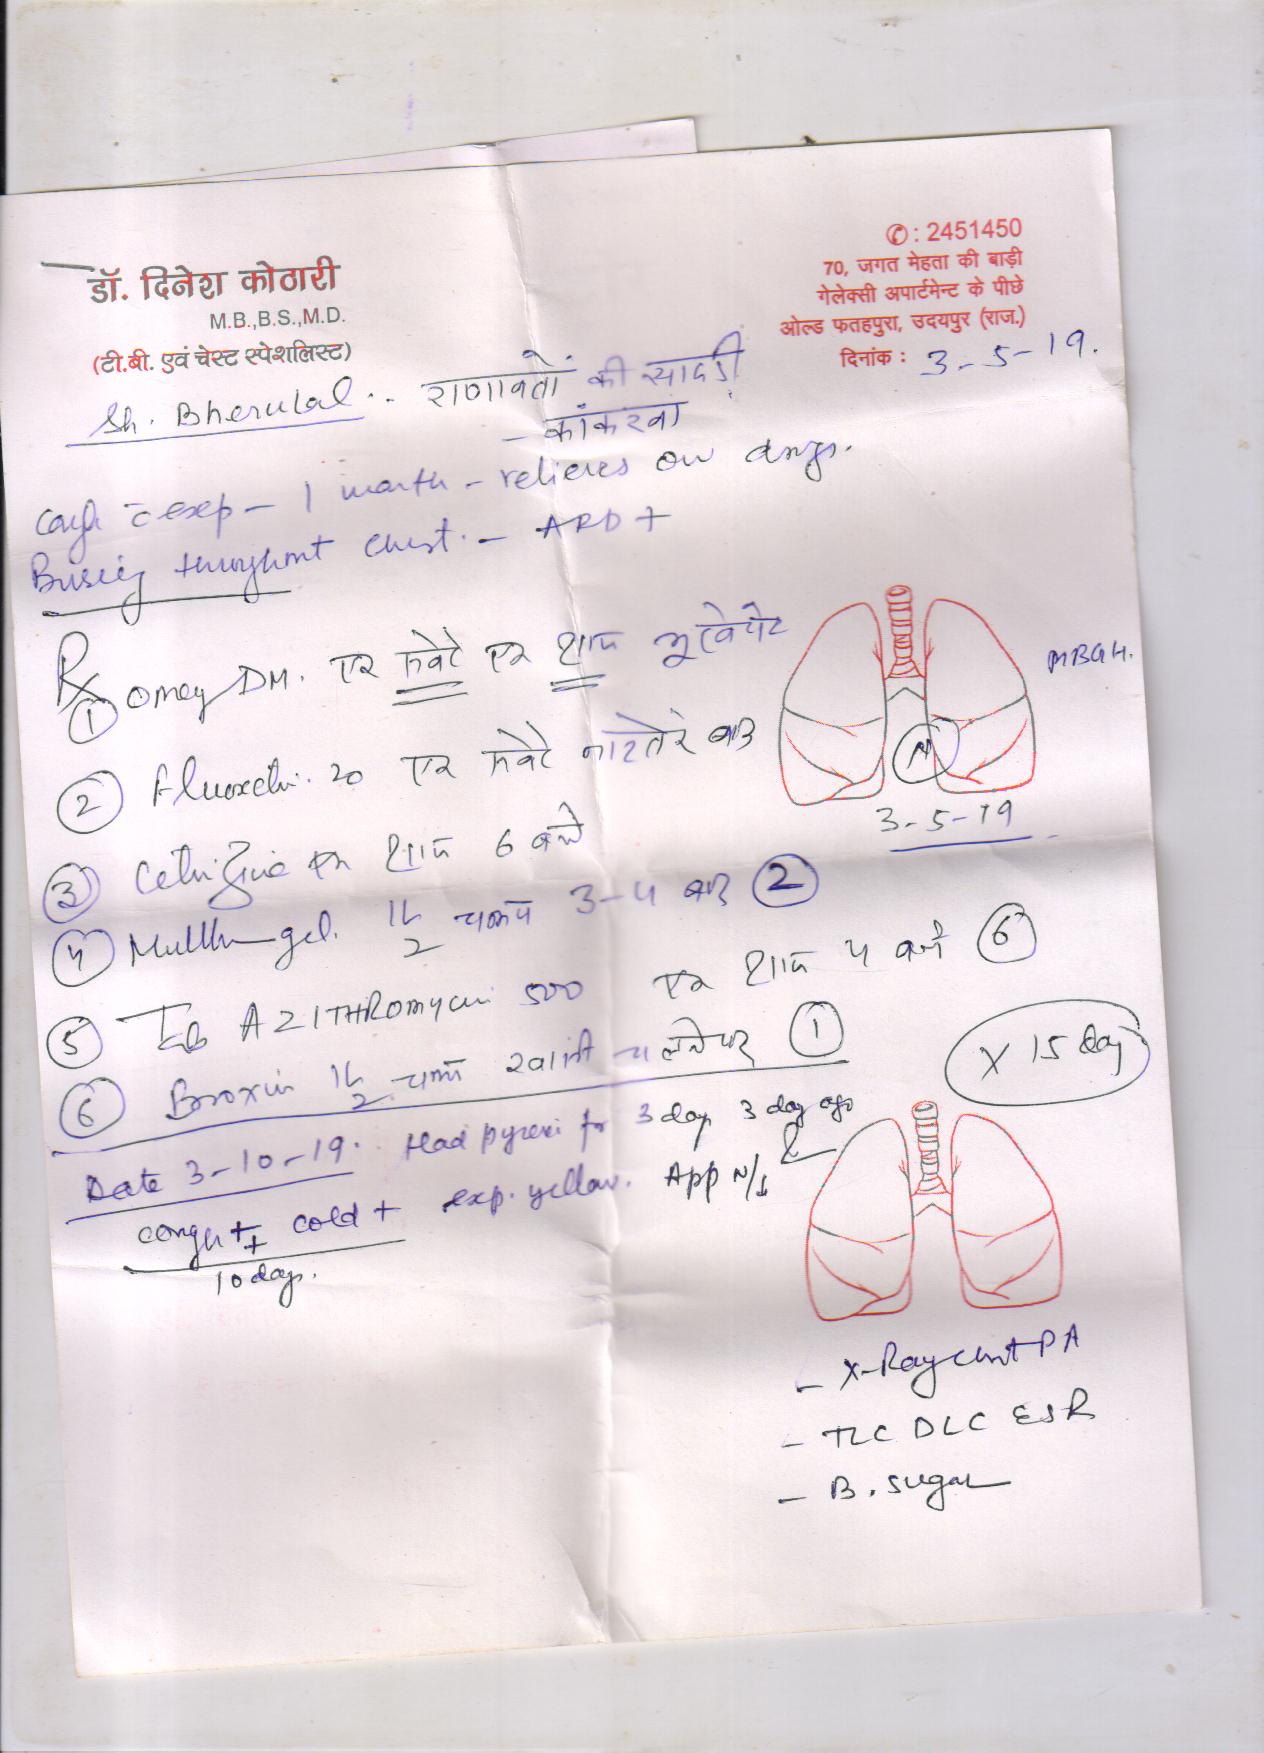 डॉ. दिनेश कोठारी
M.B.,B.S.,M.D.
(टी.बी. एवं चेस्ट स्पेशलिस्ट)
✆: 2451450
70, जगत मेहता की बाड़ी
गेलेक्सी अपार्टमेन्ट के पीछे
ओल्ड फतहपुरा, उदयपुर (राज.)
दिनांक : 3-5-19.
Sh. Bherulal.. राणावतों की सादडी
- कांकरवा
Cough c̄ exp - 1 month - relieves on drugs.
throughout chest. - ARD +
Rx
① Omez DM. एक सवेरे एक शाम भूखेपेट
② Fluoxetin. 20 एक सवेरे नाश्तेके बाद
③ Cetrizine एक शाम 6 बजे
④ gel. 1½ चम्मच 3-4 बार ②
⑤ Tab AZITHROMYCIN 500 एक शाम 4 बजे ⑥
⑥ Broxin 1½ चम्मच खांसी चलनेपर ①
MBGH.
N
3-5-19
X 15 day
Date 3-10-19. Had pyrexia for 3 day 3 day ago
cough ++ cold + exp. yellow. App N/↓
10 days.
- X-Ray chest PA
- TLC DLC ESR
- B. sugar